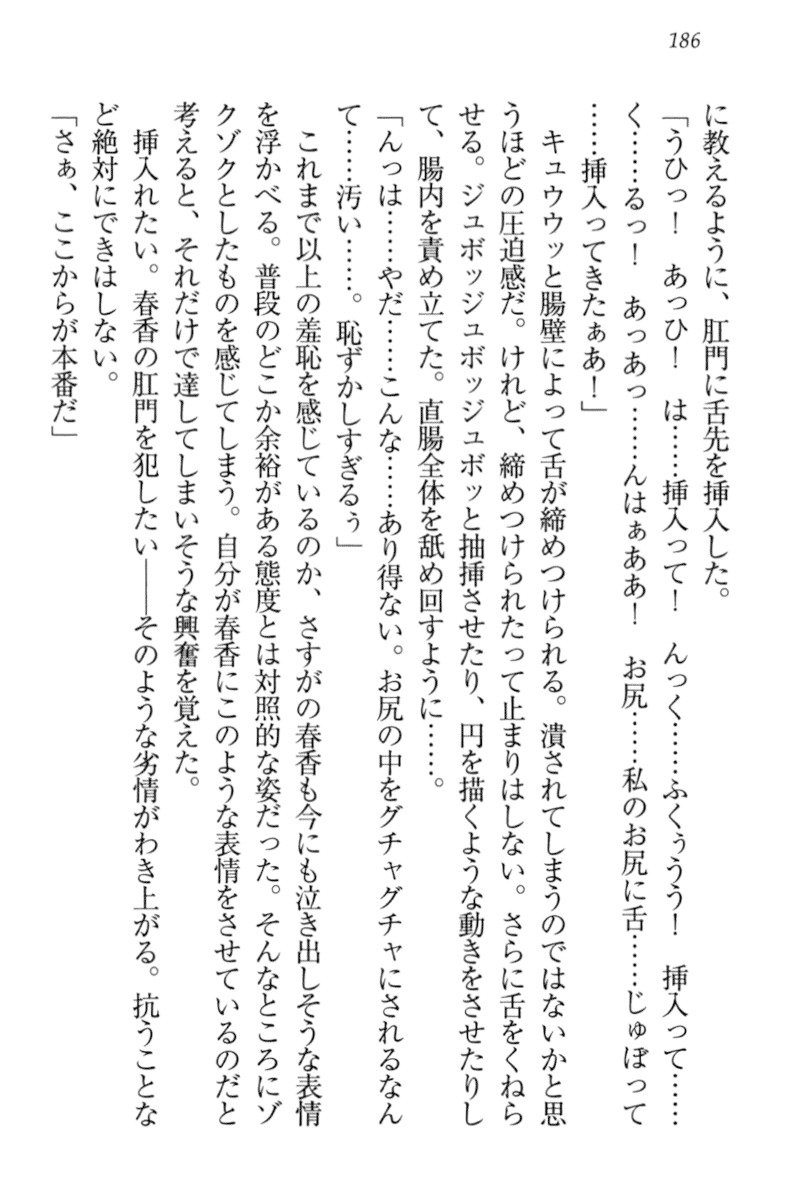 186
に教えるように、肛門に舌先を挿入した。
「うひっ！　あっひ！　は……挿入って！　んっく……ふくぅうう！　挿入って……
く……るっ！　あっあっ……んはぁああ！　お尻……私のお尻に舌……じゅぼって
……挿入ってきたぁあ！」
　キュウウッと腸壁によって舌が締めつけられる。潰されてしまうのではないかと思
うほどの圧迫感だ。けれど、締めつけられたって止まりはしない。さらに舌をくねら
せる。ジュボッジュボッジュボッと抽挿させたり、円を描くような動きをさせたりし
て、腸内を責め立てた。直腸全体を舐め回すように……。
「んっは……やだ……こんな……あり得ない。お尻の中をグチャグチャにされるなん
て……汚い……。恥ずかしすぎるぅ」
　これまで以上の羞恥を感じているのか、さすがの春香も今にも泣き出しそうな表情
を浮かべる。普段のどこか余裕がある態度とは対照的な姿だった。そんなところにゾ
クゾクとしたものを感じてしまう。自分が春香にこのような表情をさせているのだと
考えると、それだけで達してしまいそうな興奮を覚えた。
　挿入れたい。春香の肛門を犯したい――そのような劣情がわき上がる。抗うことな
ど絶対にできはしない。
「さぁ、ここからが本番だ」